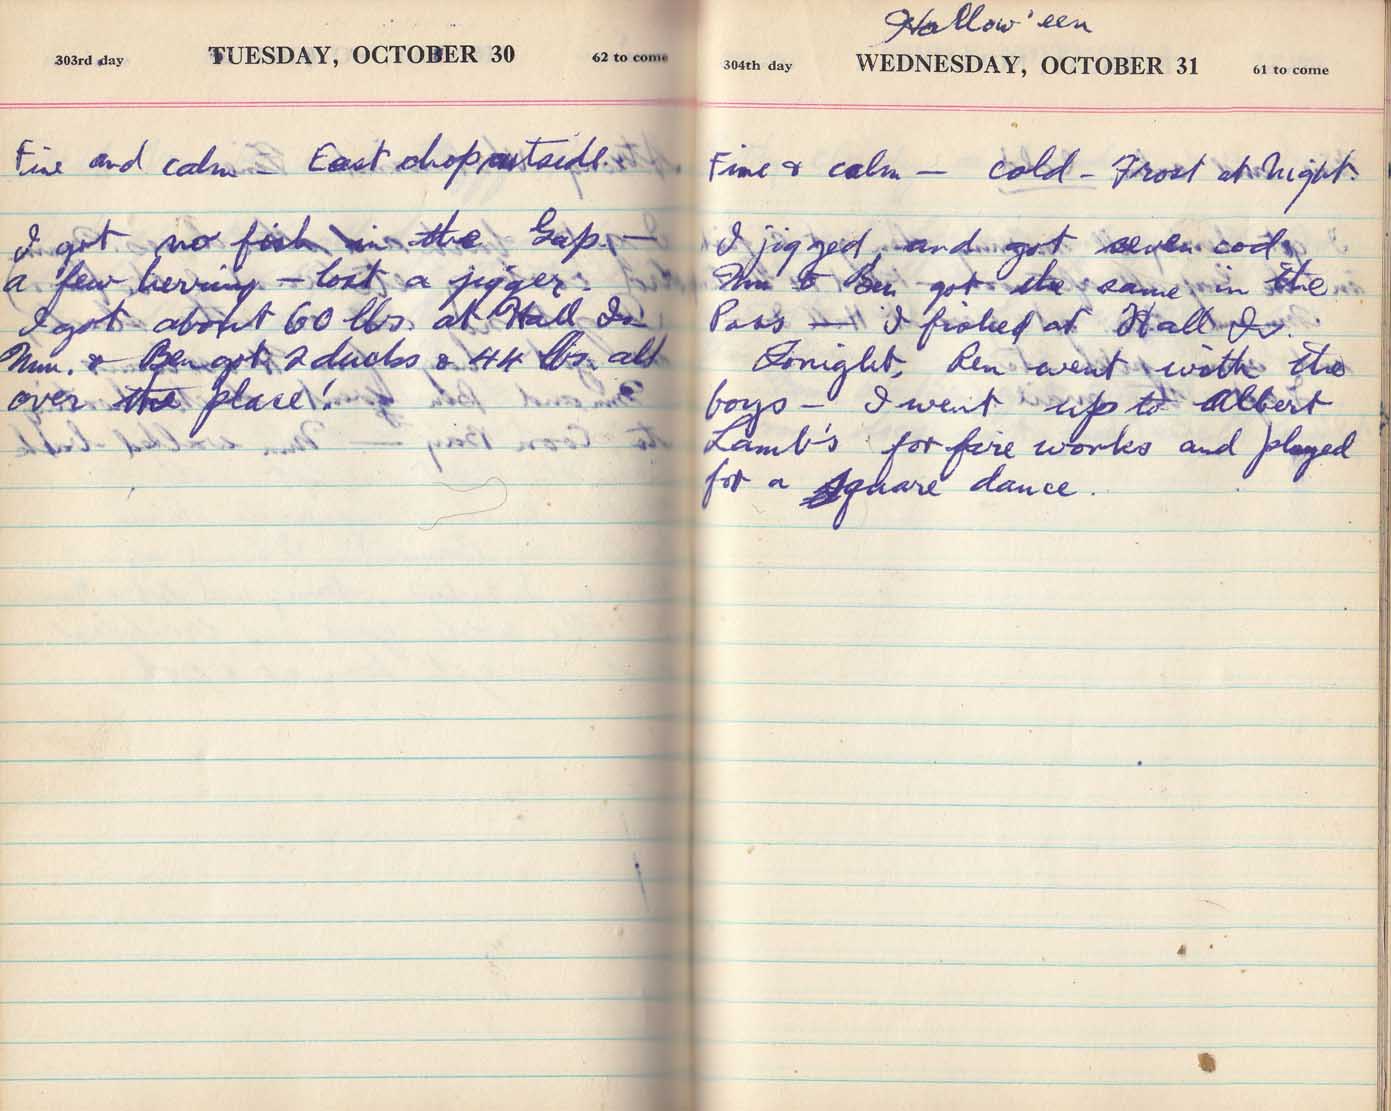 303rd day TUESDAY, OCTOBER 30 62 to come
Fine and calm – East chop outside.
I got no fish in the Gap –
a few herring – lost a jigger.
I got about 60 lbs. at Hall Is.
Mm. & Ben got 2 ducks & 44 lbs. all
over the place!
Hallow'een
304th day WEDNESDAY, OCTOBER 31 61 to come
Fine & calm – cold – Frost at Night.
I jigged and got seven cod.
& Ben got the same in the
Pass – I fished at Hall Is.
Tonight, Len went with the
boys – I went up to Albert
Lamb's for fire works and played
for a square dance.